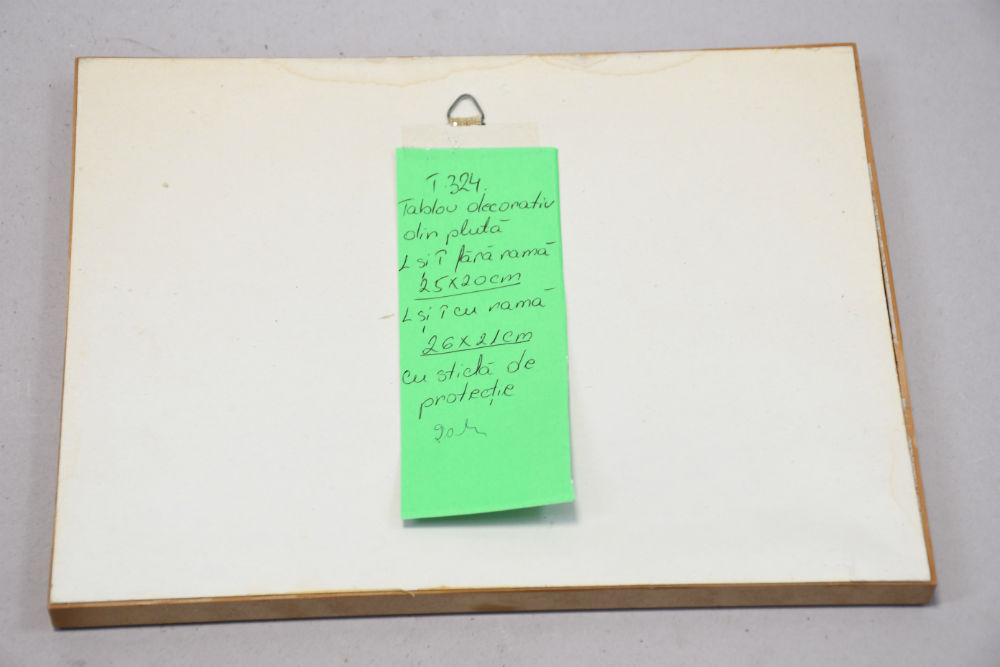 T.324.
Tablou decorativ
din plută
L și Î fără ramă
25x20cm
L și Î cu ramă
26x21cm
cu sticlă de
protecție